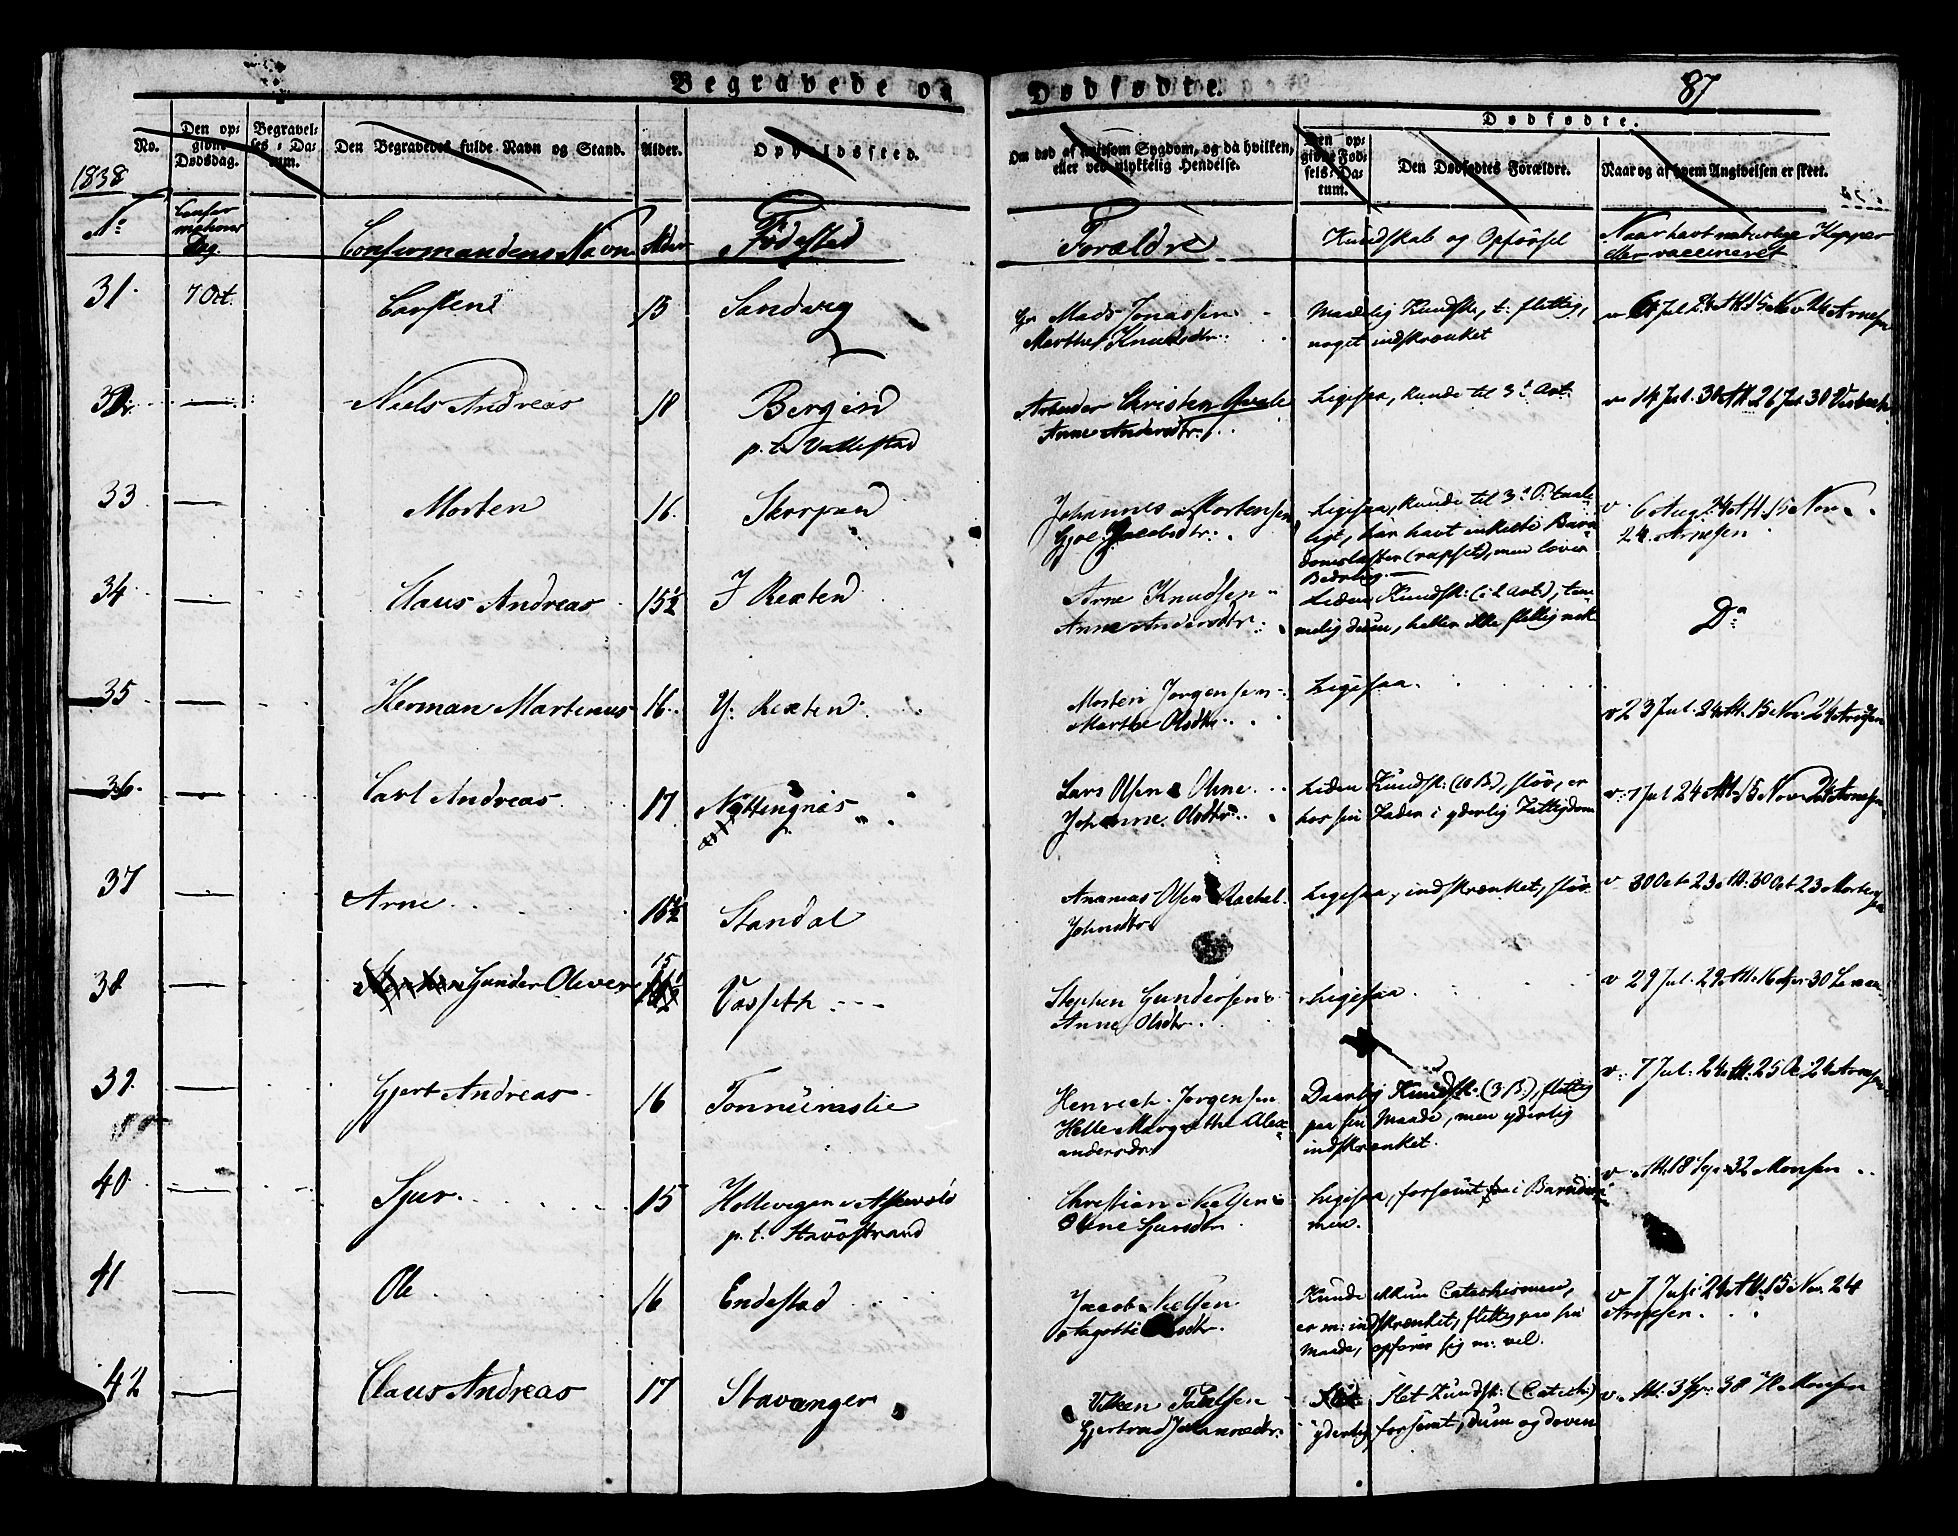 Begravede og Dødfødte.
87
No.
Den opgivne Dødsdag.
Begravelses-Datum.
Den Begravedes fulde Navn og Stand.
Alder.
Opholdssted.
Om død af smitsom Sygdom, og da hvilken, eller ved ulykkelig Hendelse.
Dødfødte.
Den opgivne Fødsels-Datum.
Den Dødfødtes Forældre.
Naar og af hvem Angivelsen er skeet.
1838
No
Confirmations Dag.
Confirmandens Navn
Alder
Fødested
Forældre
Kundskab og Opførsel
Naar havt naturlige Kopper
eller vaccineret
31. 7 Oct. Carsten 15 Sandvig
Mads Jonassen
Marthe Knudsdtr.
Maadelig Kundsk., t: flittig,
noget indskrænket
32. — Niels Andreas 18 Bergen
p. t. Vallestad
Arbeider Christen
Anne Andersdtr.
Ligesaa, kunde til 3d Art.
33 — Morten 16. Skorpen
Johannes Mortensen
Jacobsdtr.
Ligesaa, kunde til 3d P. taale
ligt, har havt enkelte Barn
domslaster (rapset), men lover
Bedring.
v 6 Aug. 24 Att. 15 Nov.
24. Arnesen
34 — Claus Andreas 15½ Rexten
Arne Knudsen
Anne Andersdtr.
Liden Kundsk: (i 2 Art.), tem
melig dum, heller ikke flittig nok
Do
35 — Herman Martinus 16. Y. Rexten
Morten Jørgensen
Marthe Olsdtr.
Ligesaa.
v 23 Jul. 24 Att. 15 Nov. 24 Arnesen
36. — Carl Andreas 17
Lars Olsen
Johanne Olsdtr.
Liden Kundsk: (10 B), sløv, er
hos sin Fader i yderlig Fattigdom
v. 7 Jul 24 Att. 15 Nov 24 Arnesen
37 — Arne Standal
Ananias Olsen Rachel
Johnsdtr.
Ligesaa, indskrænket, sløv
v. 30 Oct. 23 Att. 30 Oct. 23 Morten
38 — Gunder Oliver 15 Vasseth
Stephen Gundersen
Anne Olsdtr.
Ligesaa
v 29 Jul. 29 Att. 16 30
39. — Gjert Andreas 16
Henrich Jørgensen
Helle Margrethe Alex
andersdr.
Daarlig Kundsk: (3 B), flittig
paa sin Maade, men yderlig
indskrænket.
v. 7 Jul. 24 Att. 25 24 Arnesen
40. — Sjur 15 Askevold
p. t. Stavøstrand
Christian Nielsen
Oline Sjursdtr
Ligesaa, forsømt i Barndom
men.
v Att. 18 32 Monsen
41 — Ole 16 Endestad
Jacob Nielsen
Olsdtr.
Kunde ikkun Catechismen,
er m: indskrænket, flittig paa sin
Maade, opfører sig m: vel.
v 7 Juli 24 Att. 15 Nov 24
Arnesen.
42 — Claus Andreas 17 Stavanger
Paulsen
Gjertrud Johannesdtr.
Slet Kundsk: (Catech:)
yderlig forsømt, dum og doven
v. Att. 3 38 H Monsen